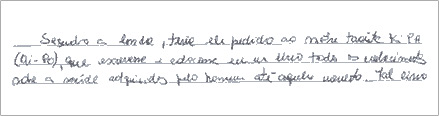 Segundo a lenda, teria ele pedido ao mestre taoista Ki PA
(Qi-Po), que escrevesse e colocasse em um livro todos os conhecimentos
sobre a saúde adquiridos pelo homem até aquele momento. Tal livro